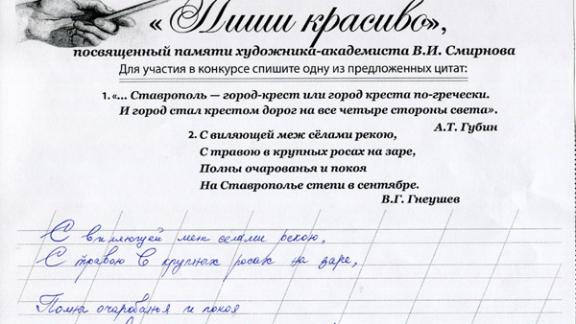 « Пиши красиво»,
посвященный памяти художника-академиста В.И. Смирнова
Для участия в конкурсе спишите одну из предложенных цитат:
1. «... Ставрополь — город-крест или город креста по-гречески.
И город стал крестом дорог на все четыре стороны света».
А.Т. Губин
2. С виляющей меж сёлами рекою,
С травою в крупных росах на заре,
Полны очарованья и покоя
На Ставрополье степи в сентябре.
В.Г. Гнеушев
С виляющей меж селами рекою,
С травою в крупных росах на заре,
Полны очарованья и покоя